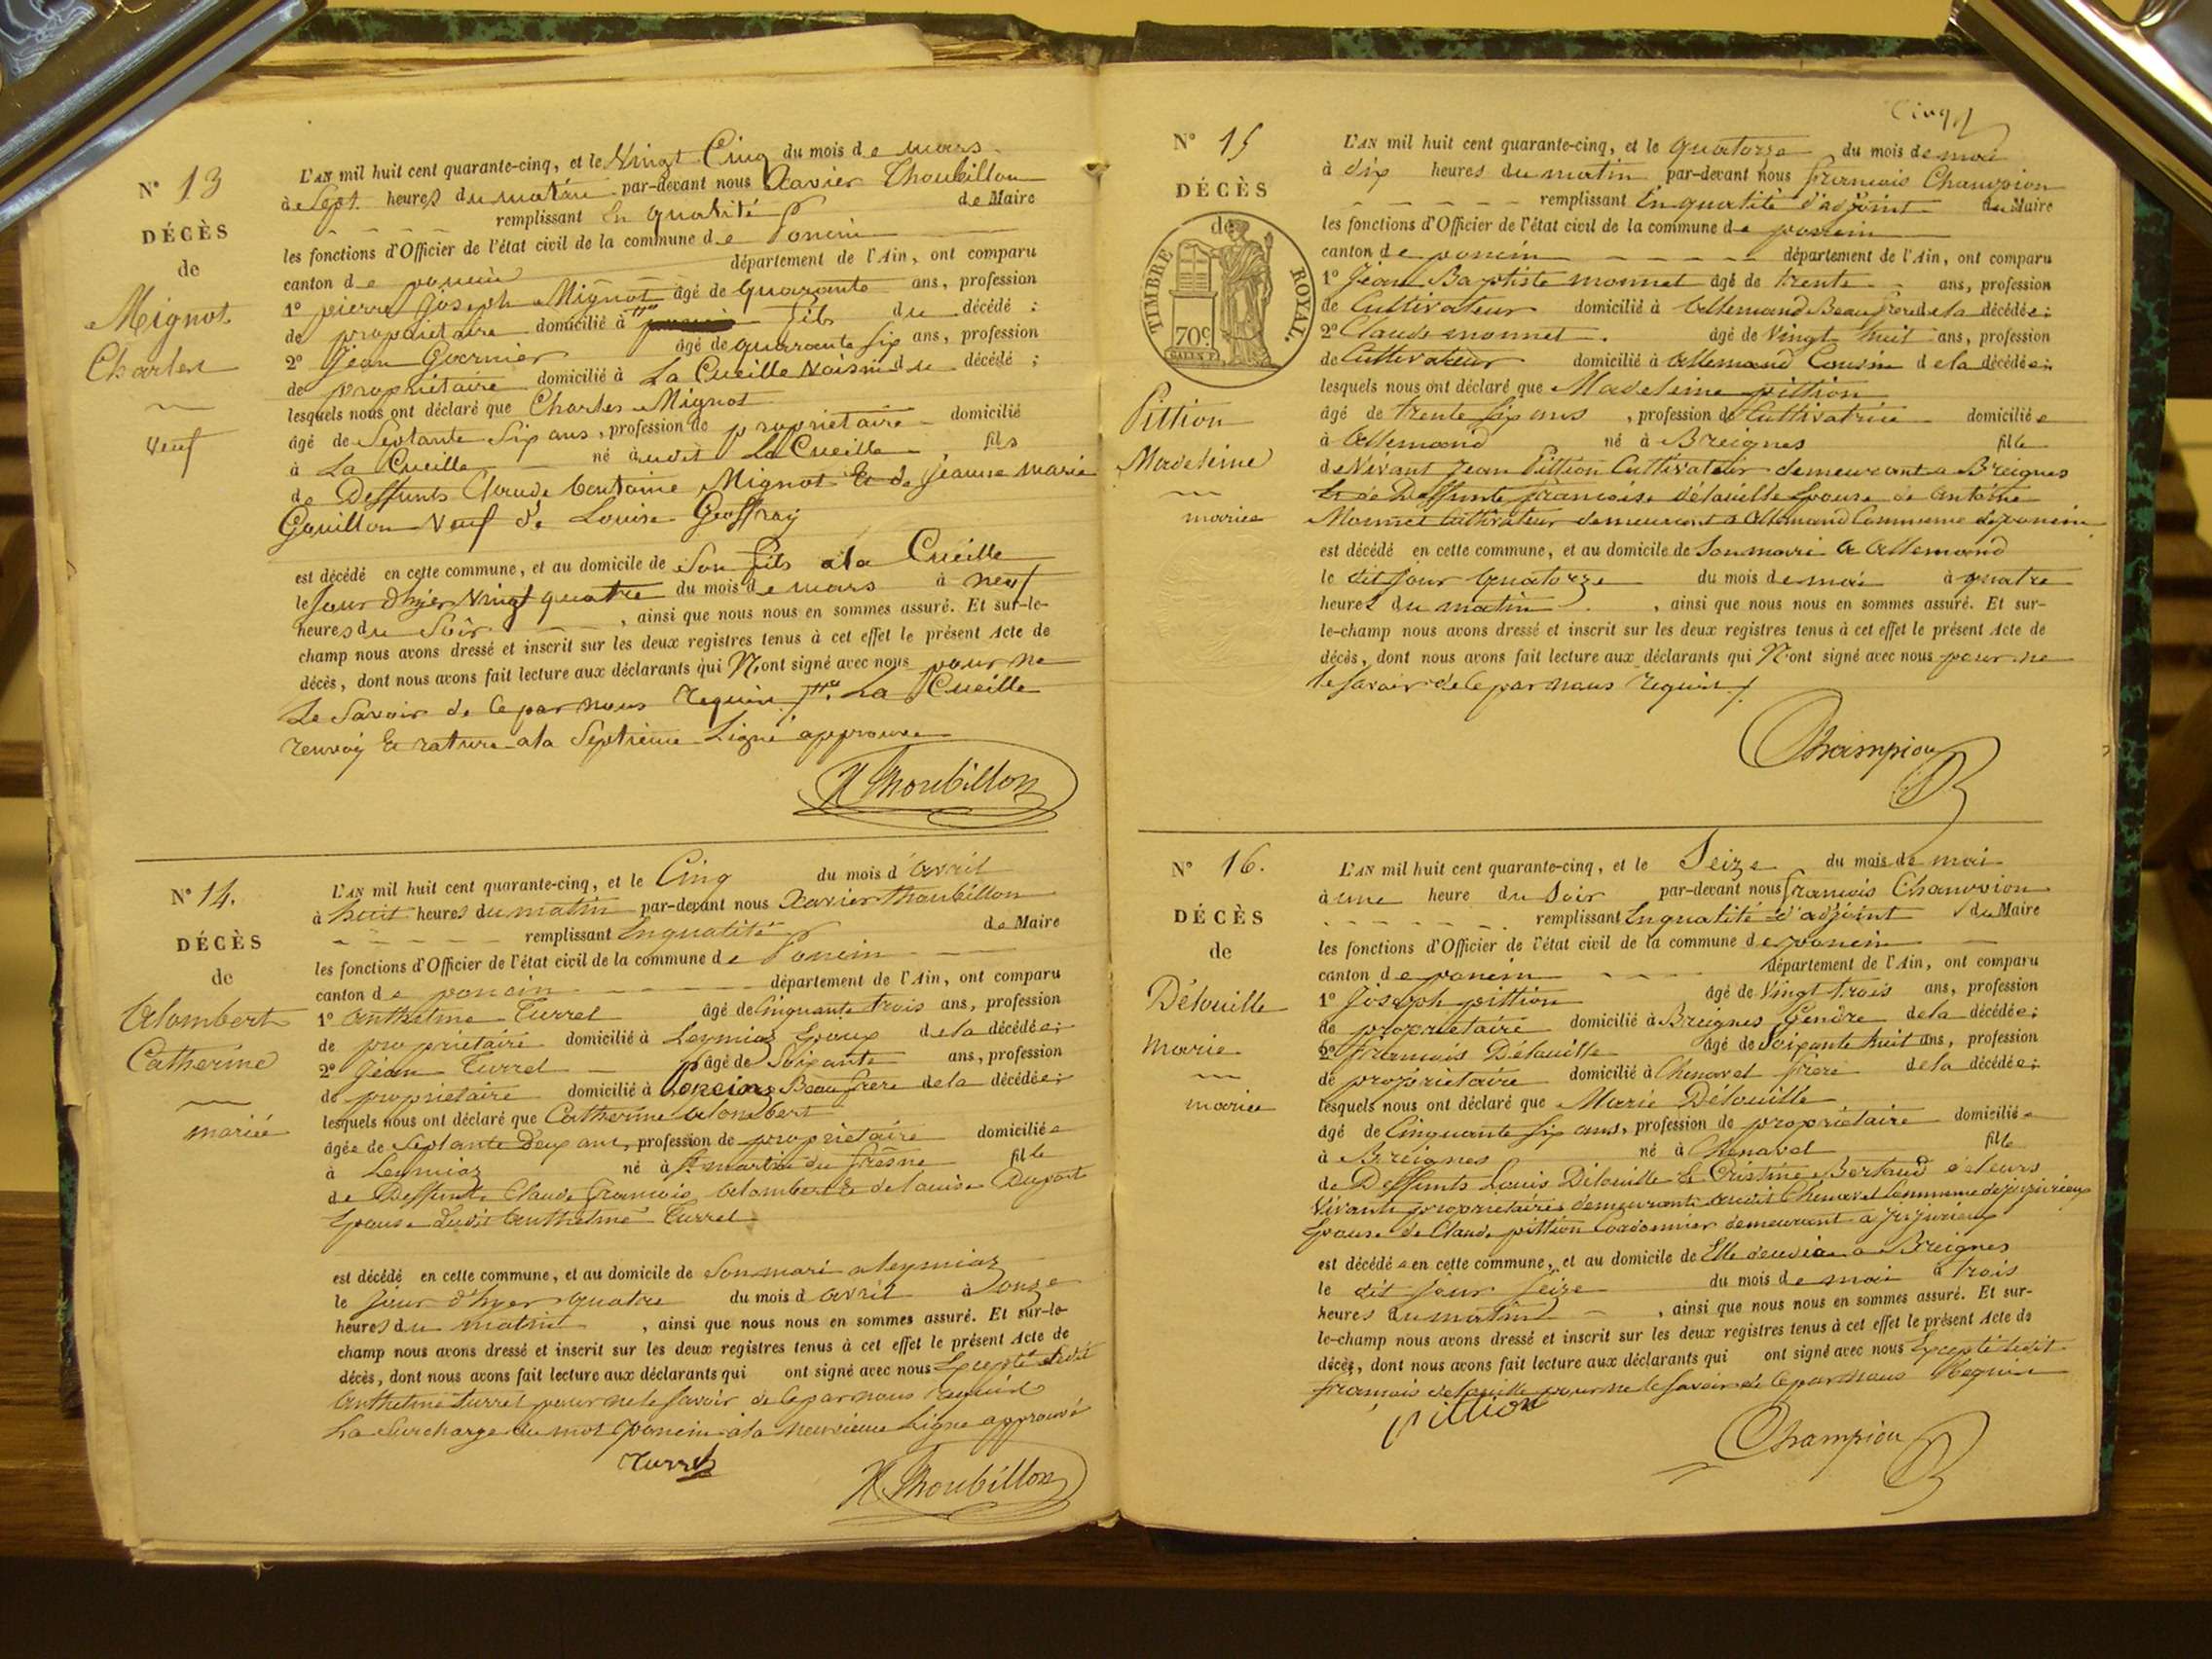 N° 13
DÉCÈS
de
Mignot
Charles
veuf
L'AN mil huit cent quarante-cinq, et le Vingt Cinq du mois de mars
à Sept heures du matin par-devant nous Xavier Thoubillon
remplissant En qualité de Maire
les fonctions d'Officier de l'état civil de la commune de Poncin
canton de poncin département de l'Ain, ont comparu
1° pierre Joseph Mignot âgé de quarante ans, profession
de propriétaire domicilié à fils du décédé ;
2° Jean Guernier âgé de quarante six ans, profession
de propriétaire domicilié à La Cueille Voisin du décédé ;
lesquels nous ont déclaré que Charles Mignot
âgé de Septante Six ans, profession de propriétaire domicilié
à La Cueille né audit La Cueille fils
de Deffunts Claude Antoine Mignot Et de Jeanne Marie
Gouillon Veuf de Louise Geoffray
est décédé en cette commune, et au domicile de Son fils a la Cueille
le Jour d'hyer Vingt quatre du mois de mars à neuf
heures du Soir, ainsi que nous nous en sommes assuré. Et sur-le-
champ nous avons dressé et inscrit sur les deux registres tenus à cet effet le présent Acte de
décès, dont nous avons fait lecture aux déclarants qui N'ont signé avec nous pour ne
Le Savoir de Ce par nous Requis La Cueille
renvoy Et rature a la Septieme Ligne approuvé
X Thoubillon
N° 14.
DÉCÈS
de
Alombert
Catherine
mariée
L'AN mil huit cent quarante-cinq, et le Cinq du mois d'avril
à huit heures du matin par-devant nous Xavier Thoubillon
remplissant En qualité de Maire
les fonctions d'Officier de l'état civil de la commune de Poncin
canton de poncin département de l'Ain, ont comparu
1° Anthelme Turrel âgé de Cinquante trois ans, profession
de propriétaire domicilié à Leymiaz Epoux de la décédée ;
2° Jean Turrel âgé de Soixante ans, profession
de propriétaire domicilié à Poncin Beau frere de la décédée ;
lesquels nous ont déclaré que Catherine Alombert
âgée de Septante Deux ans, profession de propriétaire domiciliée
à Leymiaz né à St martin du frêsne fille
de Deffunts Claude francois Alombert Et de Louise Dupont
Epouse dudit Anthelme Turrel
est décédé en cette commune, et au domicile de Son mari a Leymiaz
le Jour d'hyer quatre du mois d'avril à onze
heures du matin, ainsi que nous nous en sommes assuré. Et sur-le-
champ nous avons dressé et inscrit sur les deux registres tenus à cet effet le présent Acte de
décès, dont nous avons fait lecture aux déclarants qui ont signé avec nous Excepté ledit
Anthelme Turrel pour ne le Savoir de Ce par nous requis
La Surcharge du mot Poncin a la neuvieme Ligne approuvé
Turrel
X Thoubillon
Cinq
N° 15
DÉCÈS
de
TIMBRE ROYAL.
70c
Pittion
Madeleine
mariee
L'AN mil huit cent quarante-cinq, et le quatorze du mois de mai
à dix heures du matin par-devant nous francois Champion
remplissant En qualité d'adjoint du Maire
les fonctions d'Officier de l'état civil de la commune de poncin
canton de poncin département de l'Ain, ont comparu
1° Jean Baptiste monnet âgé de trente ans, profession
de Cultivateur domicilié à Allemand Beau frere de la décédée ;
2° Claude monnet âgé de Vingt huit ans, profession
de Cultivateur domicilié à Allemand Cousin de la décédée ;
lesquels nous ont déclaré que Madeleine pittion
âgé de trente Six ans, profession de Cultivatrice domiciliée
à Allemand né à Breignes fille
de Vivant Jean Pittion Cultivateur demeurant a Breignes
Et de Deffunte francoise Délouille Epouse de Antoine
Monnet Cultivateur demeurant a Allemand Commune de poncin
est décédé en cette commune, et au domicile de Son mari a Allemand
le dit jour quatorze du mois de mai à quatre
heures du matin, ainsi que nous nous en sommes assuré. Et sur-
le-champ nous avons dressé et inscrit sur les deux registres tenus à cet effet le présent Acte de
décès, dont nous avons fait lecture aux déclarants qui N'ont signé avec nous pour ne
le Savoir de Ce par nous requis
Champion
N° 16.
DÉCÈS
de
Délouille
Marie
mariee
L'AN mil huit cent quarante-cinq, et le Seize du mois de mai
à une heure du Soir par-devant nous francois Champion
remplissant En qualité d'adjoint du Maire
les fonctions d'Officier de l'état civil de la commune de poncin
canton de poncin département de l'Ain, ont comparu
1° Joseph pittion âgé de Vingt trois ans, profession
de propriétaire domicilié à Breignes Gendre de la décédée ;
2° francois Délouille âgé de Soixante huit ans, profession
de propriétaire domicilié à Chenavel frere de la décédée ;
lesquels nous ont déclaré que Marie Délouille
âgé de Cinquante Six ans, profession de propriétaire domiciliée
à Breignes né à Chenavel fille
de Deffunts Louis Délouille Et Cristine Bertaud de leurs
Vivants propriétaires demeurants audit Chenavel Commune de jujurieux
Epouse de Claude pittion Cordonnier demeurant a jujurieux
est décédée en cette commune, et au domicile de Elle a Breignes
le dit jour Seize du mois de mai à trois
heures du matin, ainsi que nous nous en sommes assuré. Et sur-
le-champ nous avons dressé et inscrit sur les deux registres tenus à cet effet le présent Acte de
décès, dont nous avons fait lecture aux déclarants qui ont signé avec nous Excepté ledit
francois Delouille pour ne le Savoir de Ce par nous Requis
pittion
Champion